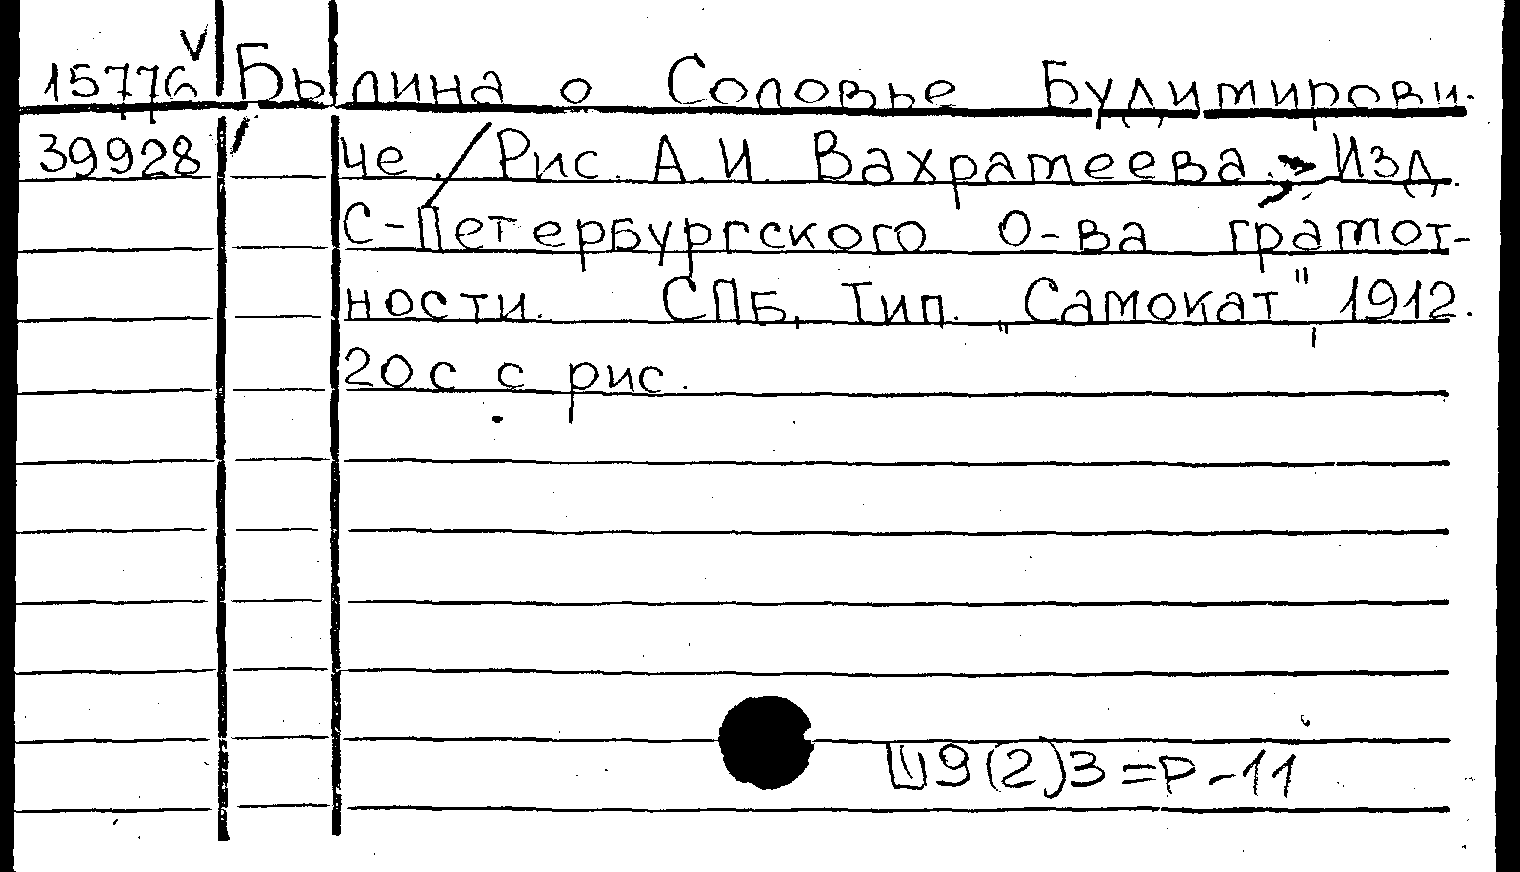 15776 V Былина о Соловье Будимирови-
39928 че. / Рис. А.И. Вахрамеева. Изд.
С-Петербургского О-ва грамот-
ности. СПБ, Тип. „Самокат", 1912.
20с с рис.
Ш9(2)3=Р-11